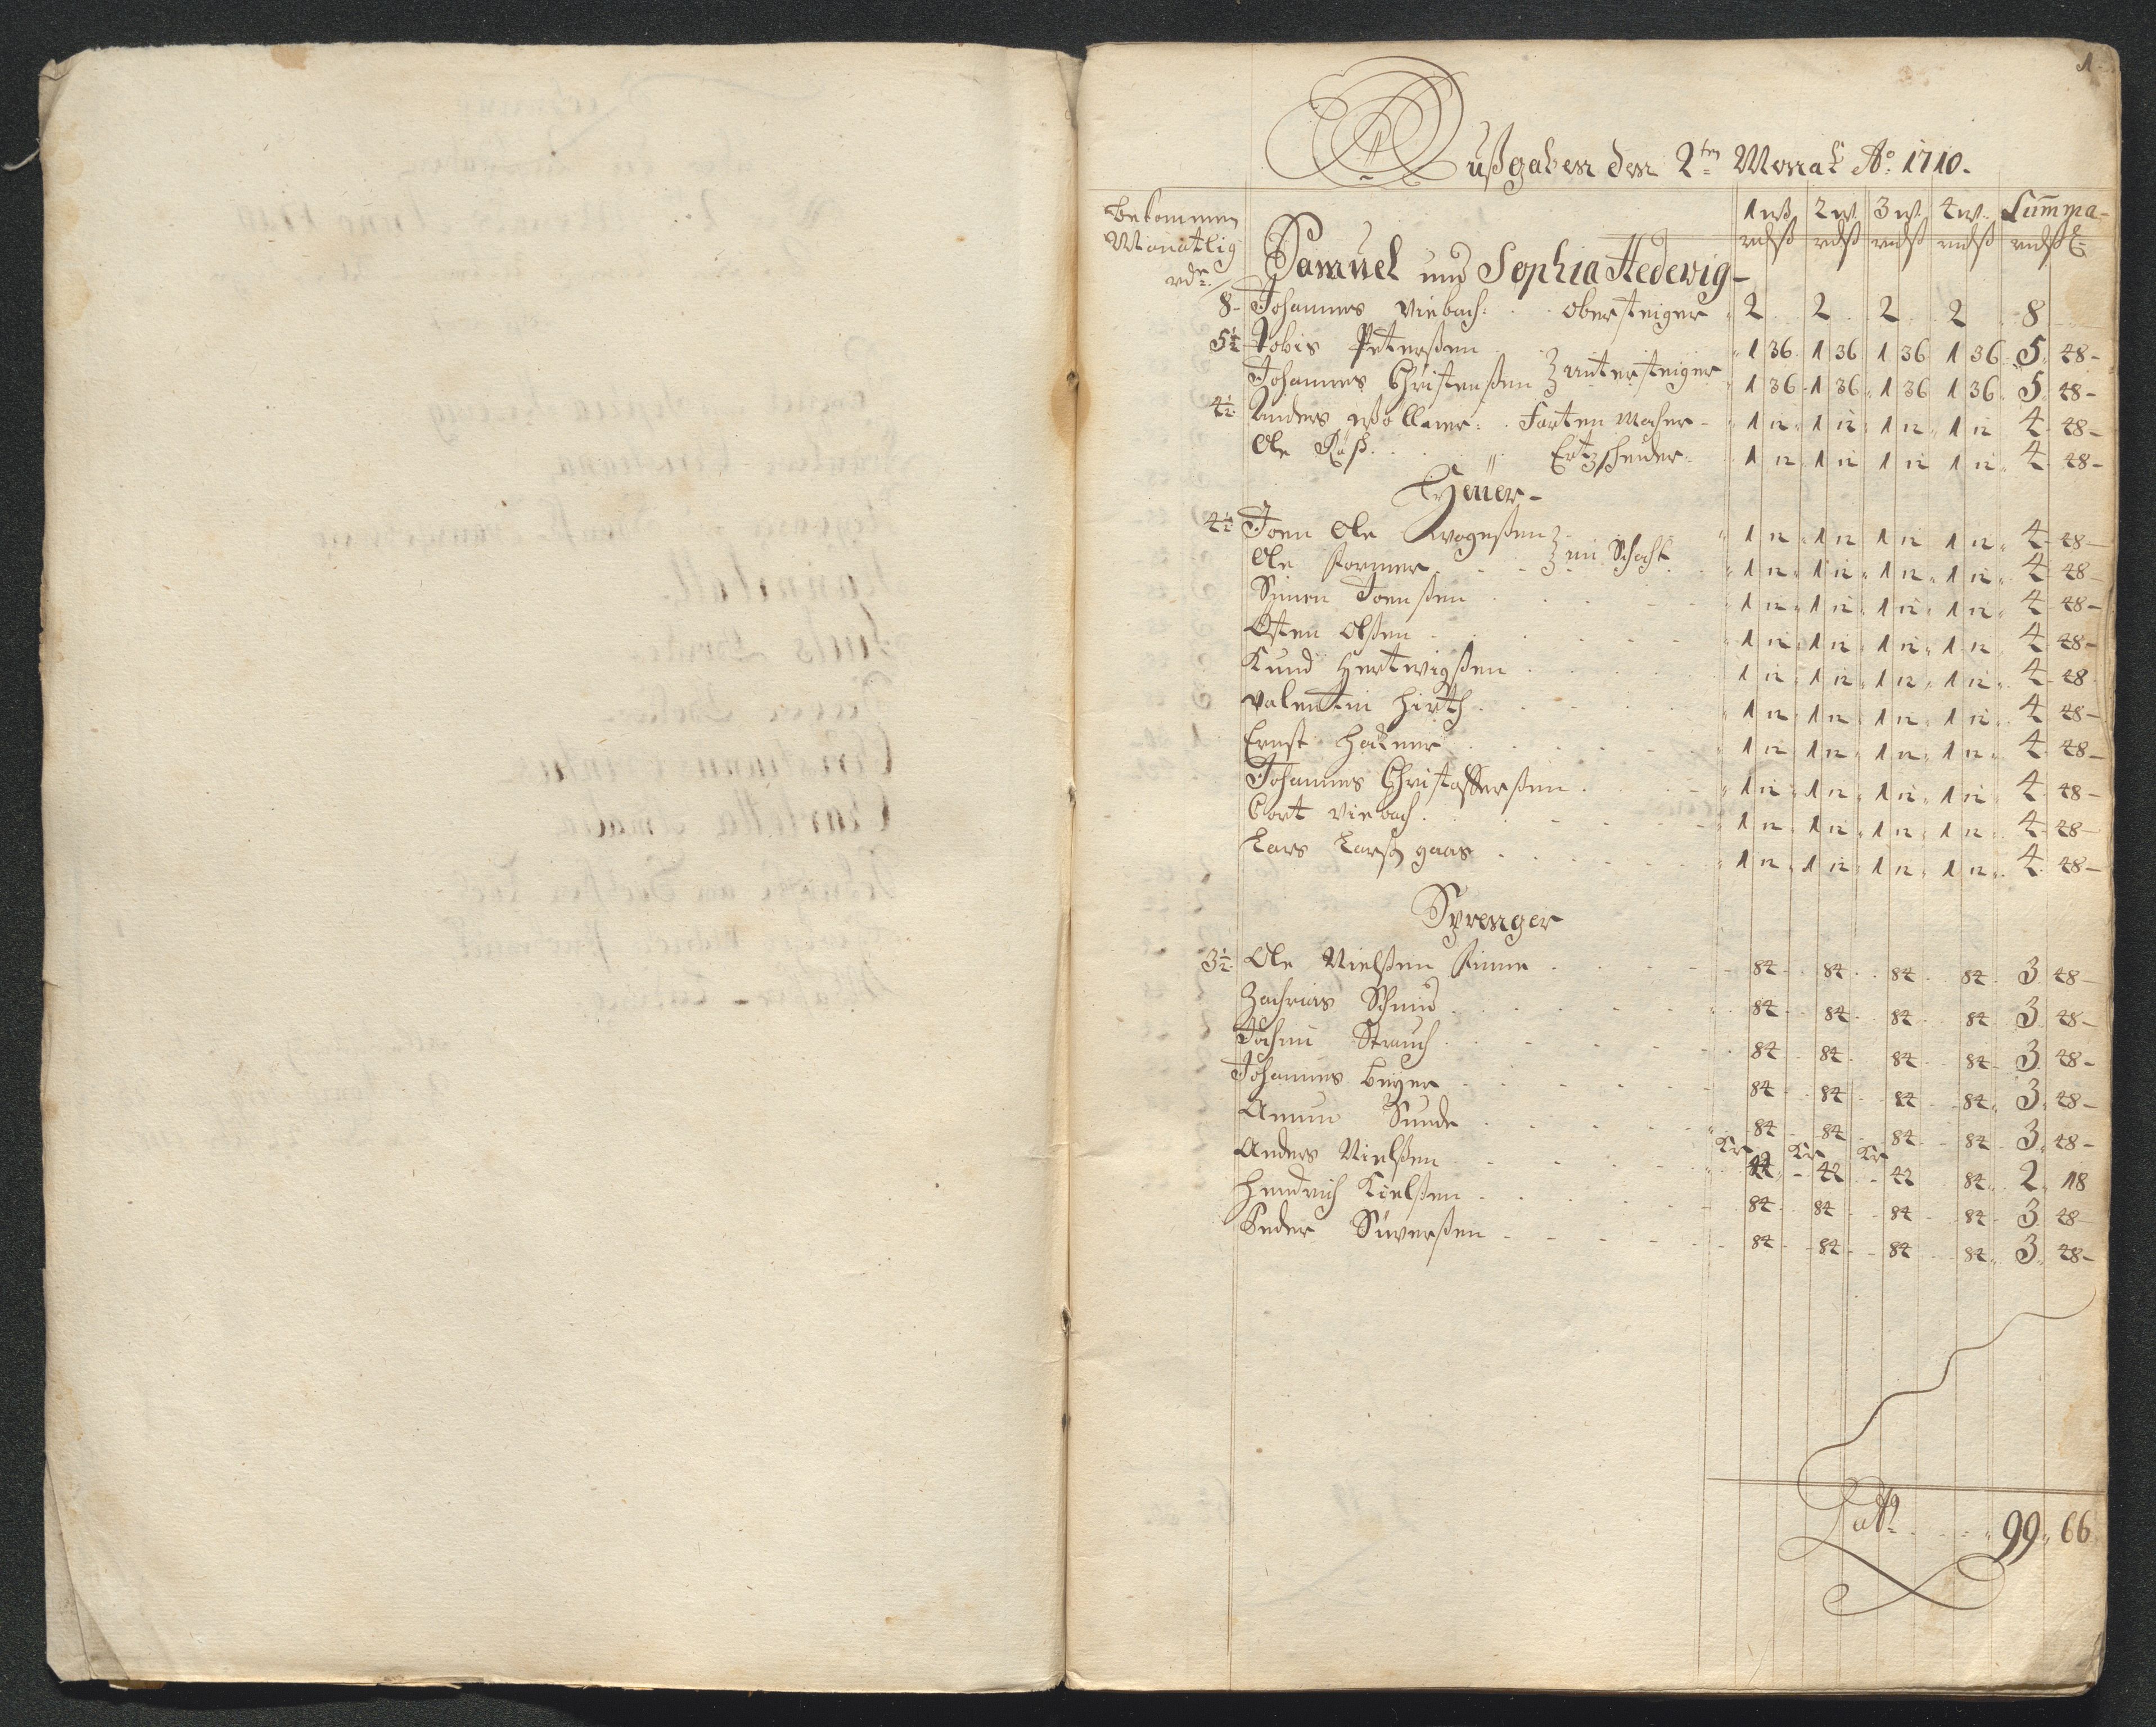 1
Außgaben den 2ten Monat Ao 1710.
Bekommen Monatlig rdr.
1 w 2 w 3 w 4 w. Summa
rdß rdß rdß rdß rdß
Samuel und Sophia Hedewig
8 Johannes Viebach: obersteiger 2 2 2 2 8
5½ Tobis Peterßen 1 36 1 36 1 36 1 36 5 48
Johannes Christenßen } untersteiger 1 36 1 36 1 36 1 36 5 48
4½ Anders Wöllner: Farten macher 1 12 1 12 1 12 1 12 4 48
Ole Roß Ertzscheider 1 12 1 12 1 12 1 12 4 48
Heüer
4½ Joen Ole wogeßen 1 12 1 12 1 12 1 12 4 48
Ole Former } im Schacht 1 12 1 12 1 12 1 12 4 48
Simen Joenßen 1 12 1 12 1 12 1 12 4 48
Östen Olßen 1 12 1 12 1 12 1 12 4 48
Knud Hertwigßen 1 12 1 12 1 12 1 12 4 48
Valentin Hirth 1 12 1 12 1 12 1 12 4 48
Ernst 1 12 1 12 1 12 1 12 4 48
Johannes Christofferßen 1 12 1 12 1 12 1 12 4 48
Cort Viebach 1 12 1 12 1 12 1 12 4 48
Lars Larß gaas 1 12 1 12 1 12 1 12 4 48
Sprenger
3½ Ole Nielßen Finne 84 84 84 84 3 48
Zachrias Schmid 84 84 84 84 3 48
Jochim Strauch 84 84 84 84 3 48
Johannes Beyer 84 84 84 84 3 48
Amun Sunde 84 84 84 84 3 48
Kr Kr Kr
Anders Nielßen 42 42 42 84 2 18
Hendrich Kielßen 84 84 84 84 3 48
Peder Siverßen 84 84 84 84 3 48
Latt 99 66